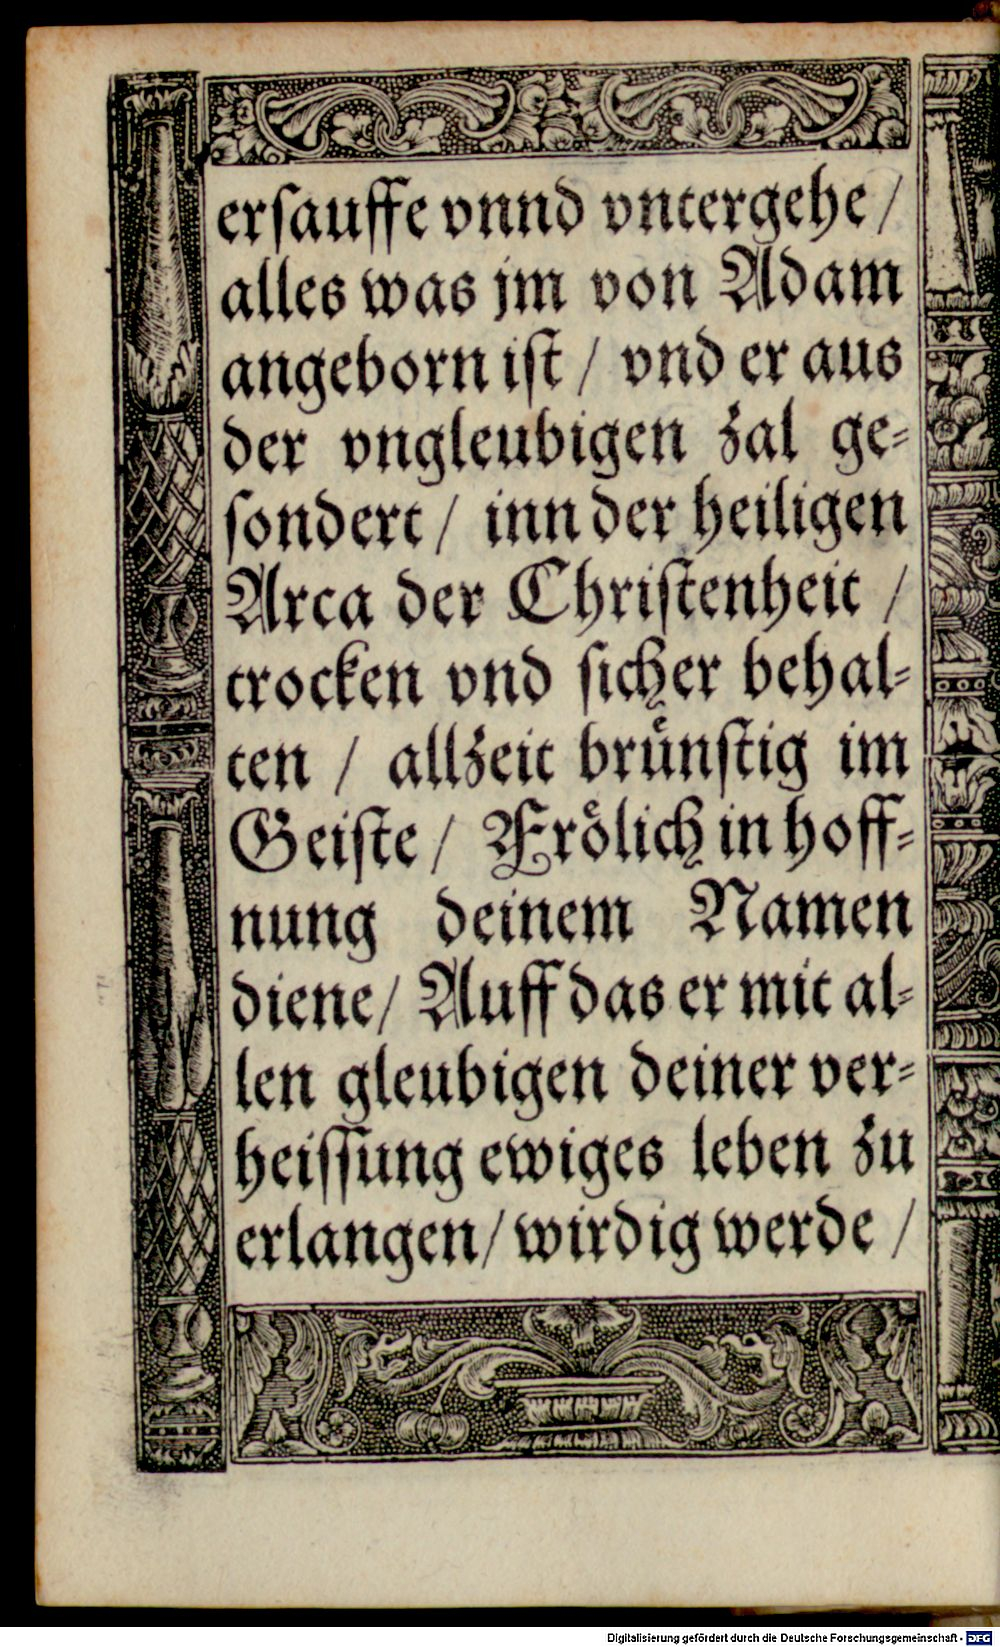 erſauffe vnnd vntergehe /
alles was jm von Adam
angeborn iſt / vnd er aus
der vngleubigen zal ge⸗
ſondert / inn der heiligen
Arca der Chriſtenheit /
trocken vnd ſicher behal⸗
ten / allzeit bruͤnſtig im
Geiſte / Froͤlich in hoff⸗
nung deinem Namen
diene / Auff das er mit al⸗
len gleubigen deiner ver⸗
heiſſung ewiges leben zu
erlangen / wirdig werde /
Digitalisierung gefördert durch die Deutsche Forschungsgemeinschaft - DFG